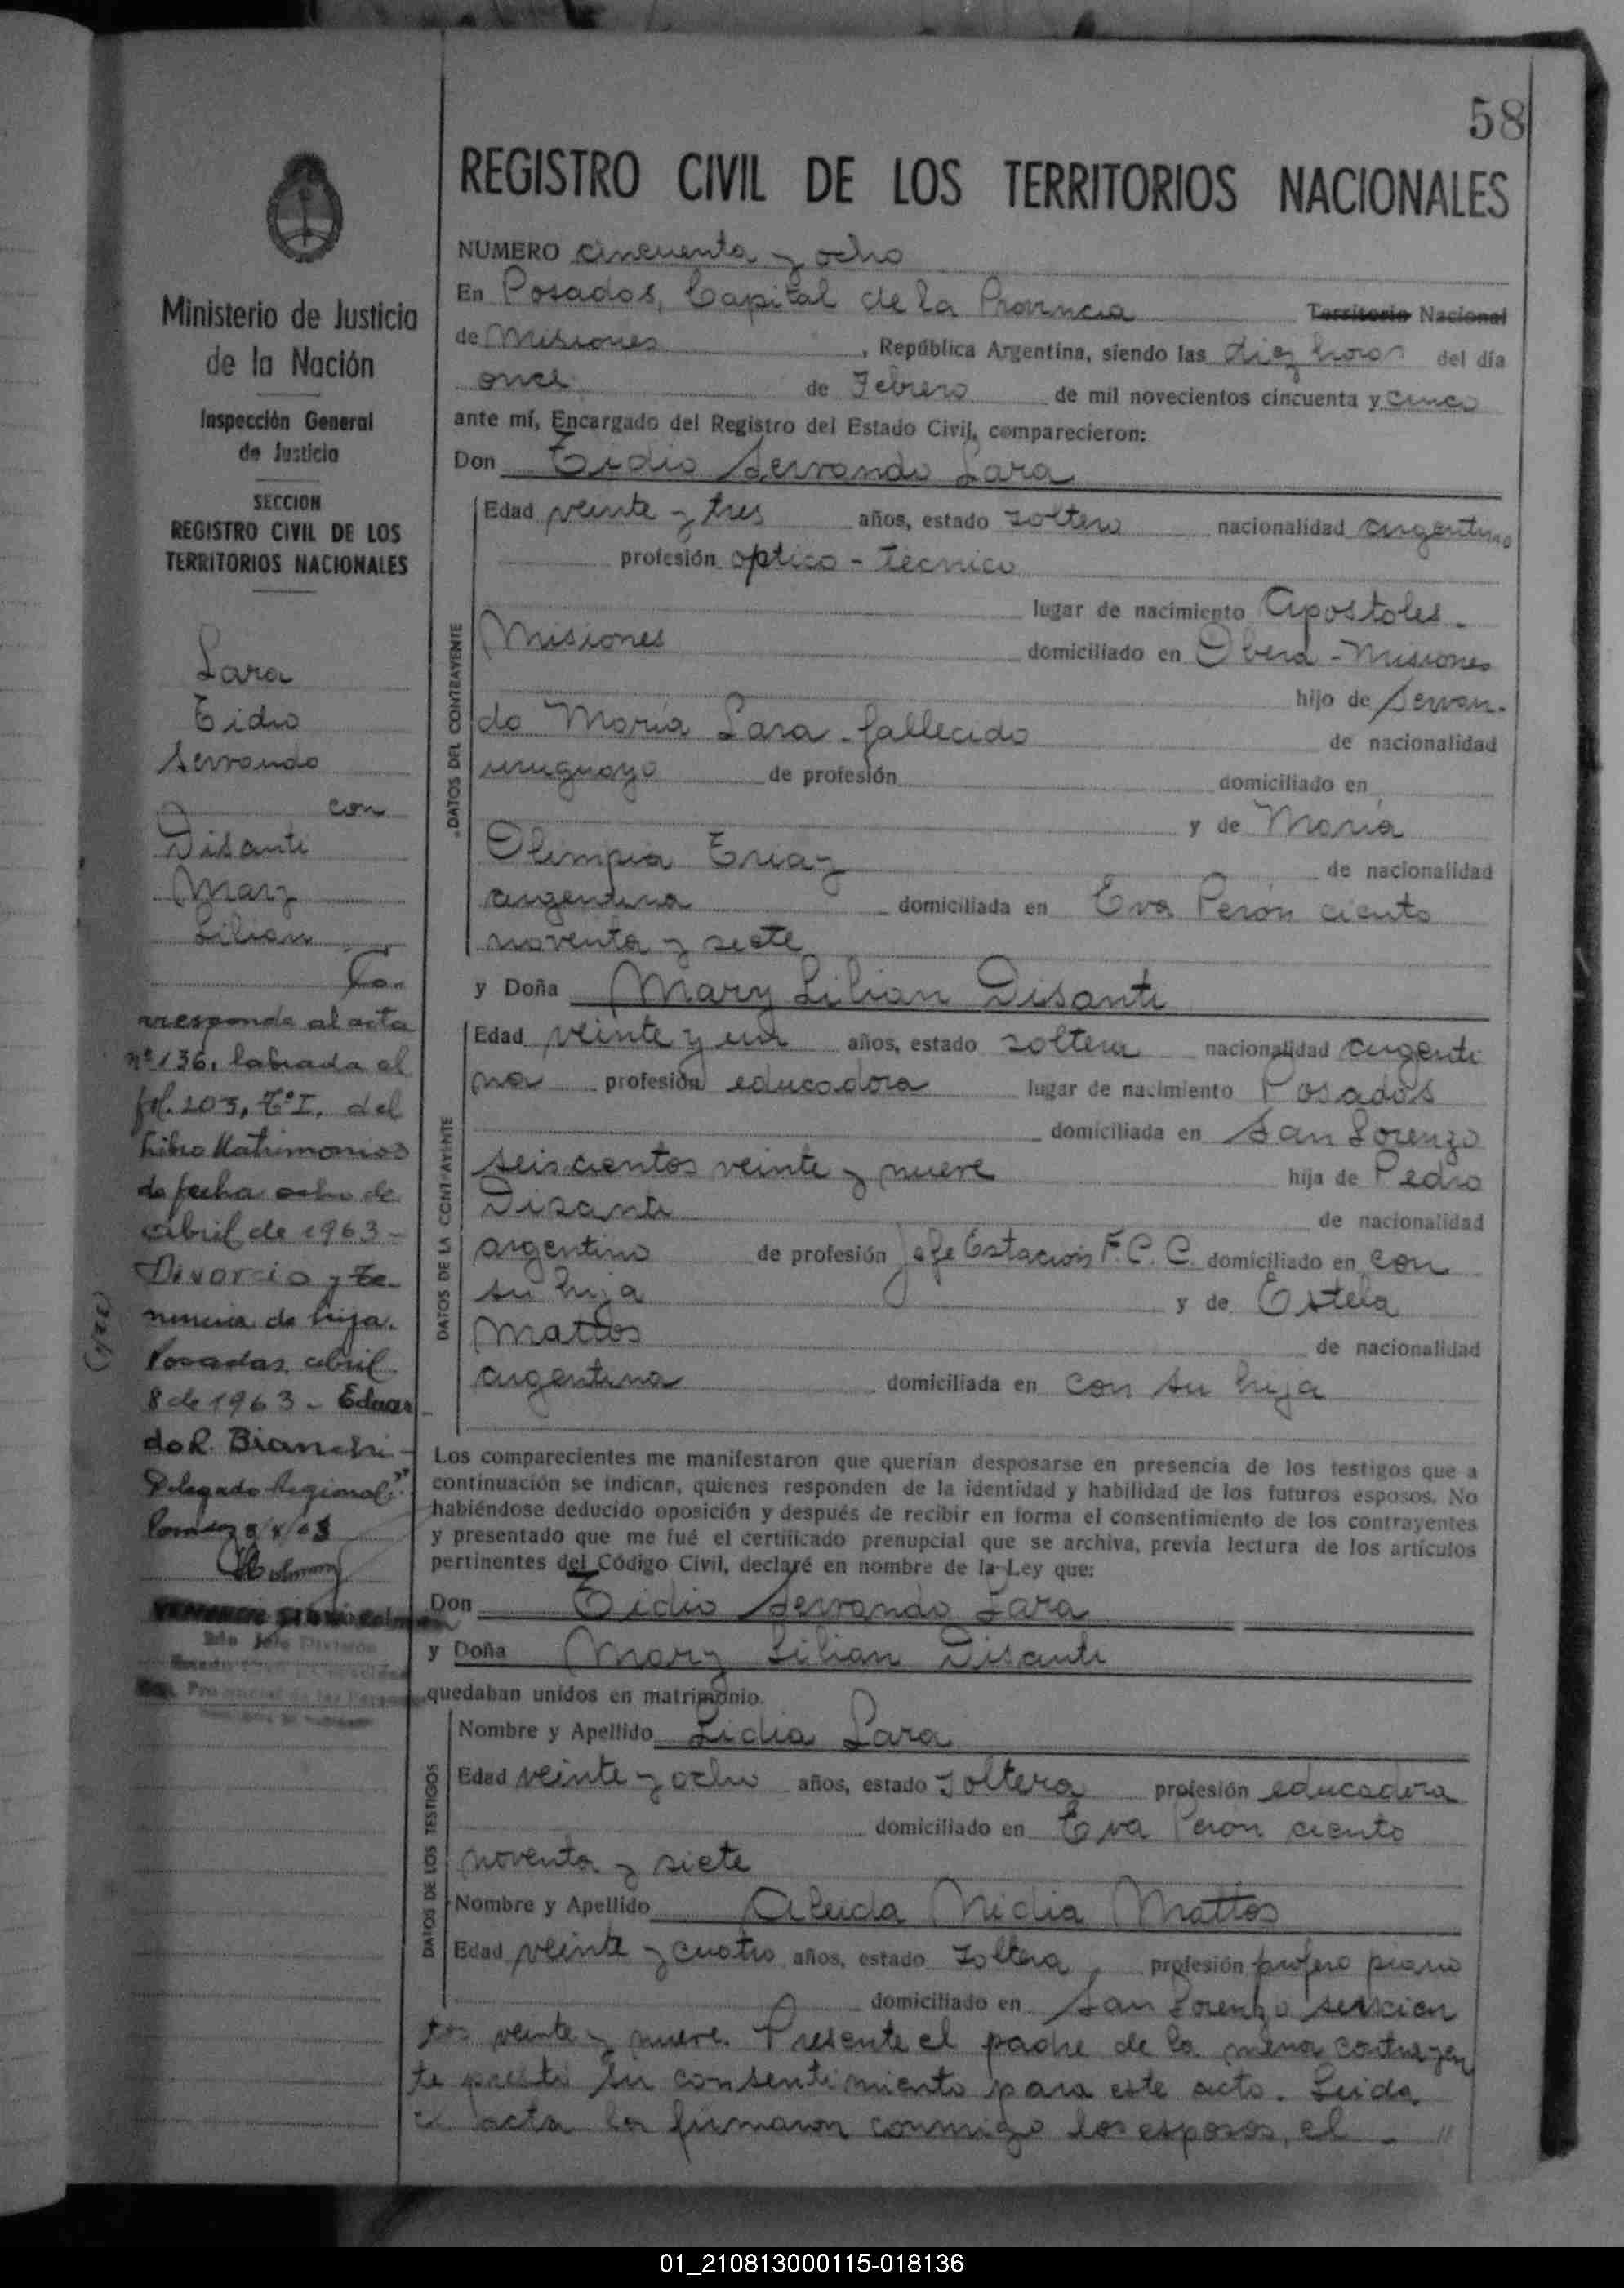 58
REGISTRO CIVIL DE LOS TERRITORIOS NACIONALES
Ministerio de Justicia
de la Nación
Inspección General
de Justicia
SECCION
REGISTRO CIVIL DE LOS
TERRITORIOS NACIONALES
Lara
Eidio
Servando
con
Disanti
Mary
Lilian
Co-
rresponde al acta
nº 136, labrada al
fol. 203, Tº I, del
Libro Matrimonios
de fecha ocho de
abril de 1963 -
Divorcio y te-
nencia de hija.
Posadas, abril
8 de 1963 - Eduar
do R. Bianchi -
Delegado Regional
NUMERO cincuenta y ocho
En Posadas, Capital de la Provincia Territorio Nacional
de Misiones , República Argentina, siendo las diez horas del día
once de Febrero de mil novecientos cincuenta y cinco
ante mí, Encargado del Registro del Estado Civil, comparecieron:
Don Eidio Servando Lara
DATOS DEL CONTRAYENTE
Edad veinte y tres años, estado soltero nacionalidad argentino
profesión optico - tecnico
lugar de nacimiento Apostoles -
Misiones domiciliado en Obera - Misiones
hijo de Servan-
do María Lara - fallecido de nacionalidad
uruguayo de profesión domiciliado en
y de María
Olimpia de nacionalidad
argentina domiciliada en Eva Perón ciento
noventa y siete
y Doña Mary Lilian Disanti
DATOS DE LA CONTRAYENTE
Edad veinte y un años, estado soltera nacionalidad argenti
na profesión educadora lugar de nacimiento Posadas
domiciliada en San Lorenzo
seiscientos veinte y nueve hija de Pedro
Disanti de nacionalidad
argentino de profesión Jefe Estación F. C. C. domiciliado en con
su hija y de Estela
Mattos de nacionalidad
argentina domiciliada en con su hija
Los comparecientes me manifestaron que querían desposarse en presencia de los testigos que a
continuación se indican, quienes responden de la identidad y habilidad de los futuros esposos. No
habiéndose deducido oposición y después de recibir en forma el consentimiento de los contrayentes
y presentado que me fué el certificado prenupcial que se archiva, previa lectura de los artículos
pertinentes del Código Civil, declaré en nombre de la Ley que:
Don Eidio Servando Lara
y Doña Mary Lilian Disanti
quedaban unidos en matrimonio.
DATOS DE LOS TESTIGOS
Nombre y Apellido Lidia Lara
Edad veinte y ocho años, estado soltera profesión educadora
domiciliado en Eva Perón ciento
noventa y siete
Nombre y Apellido Aleida Nidia Mattos
Edad veinte y cuatro años, estado soltera, profesión piano
domiciliado en San Lorenzo seiscien
tos veinte y nueve. Presente el padre de la menor contrayen
te presta su consentimiento para este acto. Leida
el acta la firmaron conmigo los esposos, el - "
01_210813000115-018136